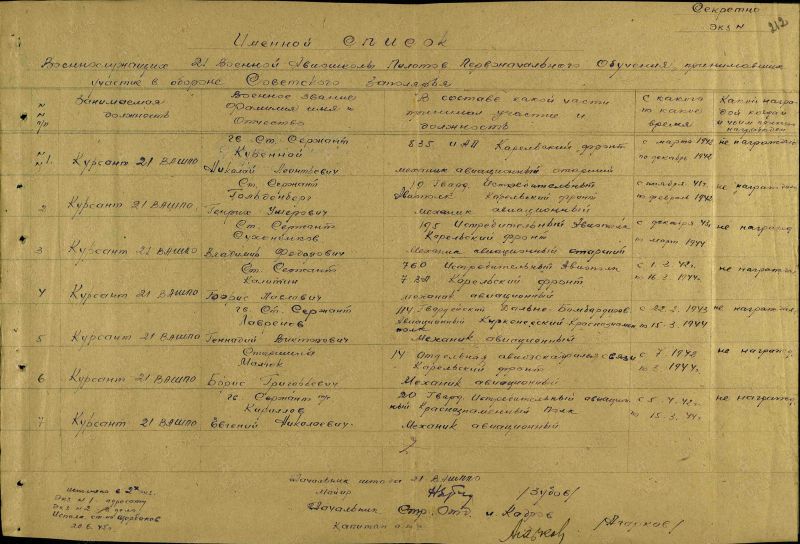 Секретно
Экз N 212
Именной список
Военнослужащих 21 Военной Авиашколы Пилотов Первоначального Обучения, принимавших
участие в обороне Советского Заполярья
N N п/п
Занимаемая должность
Военное звание Фамилия имя и Отчество
В составе какой части принимал участие и должность
С какого по какое время
Какой наградой когда и чьим награжден
1. Курсант 21 ВАШПО
гв. Ст. Сержант
Николай Леонтьевич
835 ИАП Карельский фронт
механик авиационный старший
с марта 1942
по декабрь 1942
не награждён
2 Курсант 21 ВАШПО
Ст. Сержант
Гольденберг
Генрих Умерович
19 Гвард. Истребительный
Авиаполк Карельский фронт
механик авиационный
с ноября 41г.
по февраль 1942
не награжден
3 Курсант 21 ВАШПО
Ст. Сержант
Владимир Федорович
195 Истребительный Авиаполк
Карельский фронт
Механик авиационный старший
с декабря 43г.
по март 1944
не награжд.
4 Курсант 21 ВАШПО
Ст. Сержант
Калитин
760 Истребительный Авиаполк
Карельский фронт
механик авиационный
с 1.3.42г.
по 16.3.1944г.
не награжден
5 Курсант 21 ВАШПО
гв. Ст. Сержант
Лаврентьев
Геннадий Викторович
114 Гвардейский Дально-Бомбардиров.
Авиационный Киркенесский Краснознамен.
полк
Механик авиационный
с 22.2.1943
по 15-3.1944
не награжден
6 Курсант 21 ВАШПО
Старшина
Малюк
Борис Григорьевич
14 Отдельная авиаэскадрилья связи
Карельский фронт
Механик авиационный
с 7.1942
по 3.1944г.
не награжд.
7 Курсант 21 ВАШПО
гв. Сержант
Кириллов
Евгений Николаевич
20 Гвард. Истребительный авиацион-
ный Краснознаменный Полк
Механик авиационный
с 5.4.42г.
по 15.3.44г.
не награжд.
Начальник штаба 21 ВАШПО
Майор /Зубов/
Начальник Стр. Отд. и Кадров
Капитан а/с
Отпечат. в 2х экз.
Экз N 1 - адресату
Экз N 2 в дело
Исполн. Щербаков
20.6.45г.